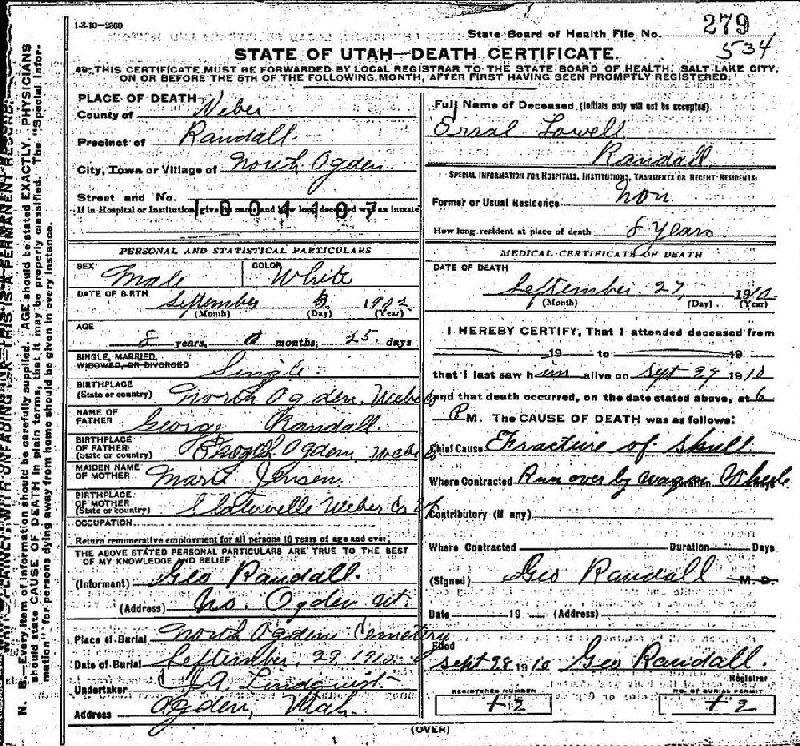 1-2-10-2500
State Board of Health File No. 279
534
STATE OF UTAH—DEATH CERTIFICATE.
THIS CERTIFICATE MUST BE FORWARDED BY LOCAL REGISTRAR TO THE STATE BOARD OF HEALTH, SALT LAKE CITY,
ON OR BEFORE THE 5TH OF THE FOLLOWING MONTH, AFTER FIRST HAVING BEEN PROMPTLY REGISTERED.
PLACE OF DEATH
County of Weber
Precinct of Randall
City, Town or Village of North Ogden
Street and No.
If in Hospital or Institution
1004107
PERSONAL AND STATISTICAL PARTICULARS
SEX Male COLOR White
DATE OF BIRTH September 1902
(Month) (Day) (Year)
AGE 8 years, 0 months, 25 days
SINGLE, MARRIED,
WIDOWED, OR DIVORCED Single
BIRTHPLACE
(State or country) North Ogden, Weber
NAME OF
FATHER George Randall
BIRTHPLACE
OF FATHER
(State or country) North Ogden, Weber
MAIDEN NAME
OF MOTHER Jensen
BIRTHPLACE
OF MOTHER
(State or country) Slaterville Weber Co
OCCUPATION
Return remunerative employment for all persons 10 years of age and over.
THE ABOVE STATED PERSONAL PARTICULARS ARE TRUE TO THE BEST
OF MY KNOWLEDGE AND BELIEF
(Informant) Geo Randall.
(Address) No. Ogden Ut.
Place of Burial North Ogden Cemetery
Date of Burial September 29 1910
Undertaker Lindquist
Address Ogden, Utah.
Full Name of Deceased (Initials only will not be accepted).
Lowell
Randall
SPECIAL INFORMATION FOR HOSPITALS, INSTITUTIONS, TRANSIENTS OR RECENT RESIDENTS
Former or Usual Residence non
How long resident at place of death 8 Years
MEDICAL CERTIFICATE OF DEATH
DATE OF DEATH
September 27, 1910
(Month) (Day) (Year)
I HEREBY CERTIFY, That I attended deceased from
19 to 19
that I last saw him alive on Sept 27 1910
and that death occurred, on the date stated above, at 6
P M. The CAUSE OF DEATH was as follows:
Chief Cause Fracture of Skull
Where Contracted Run over by wagon Wheele
Contributory (if any)
Where Contracted Duration Days
(Signed) Geo Randall M. D.
Date 19 (Address)
Filed
Sept 28 1910 Geo Randall.
Registrar
REGISTERED NUMBER
12
NO. OF BURIAL PERMIT
12
(OVER)
N. B. Every item of information should be carefully supplied. AGE should be stated EXACTLY. PHYSICIANS
should state CAUSE OF DEATH in plain terms, that it may be properly classified. The "Special Infor-
mation" for persons dying away from home should be given in every instance.